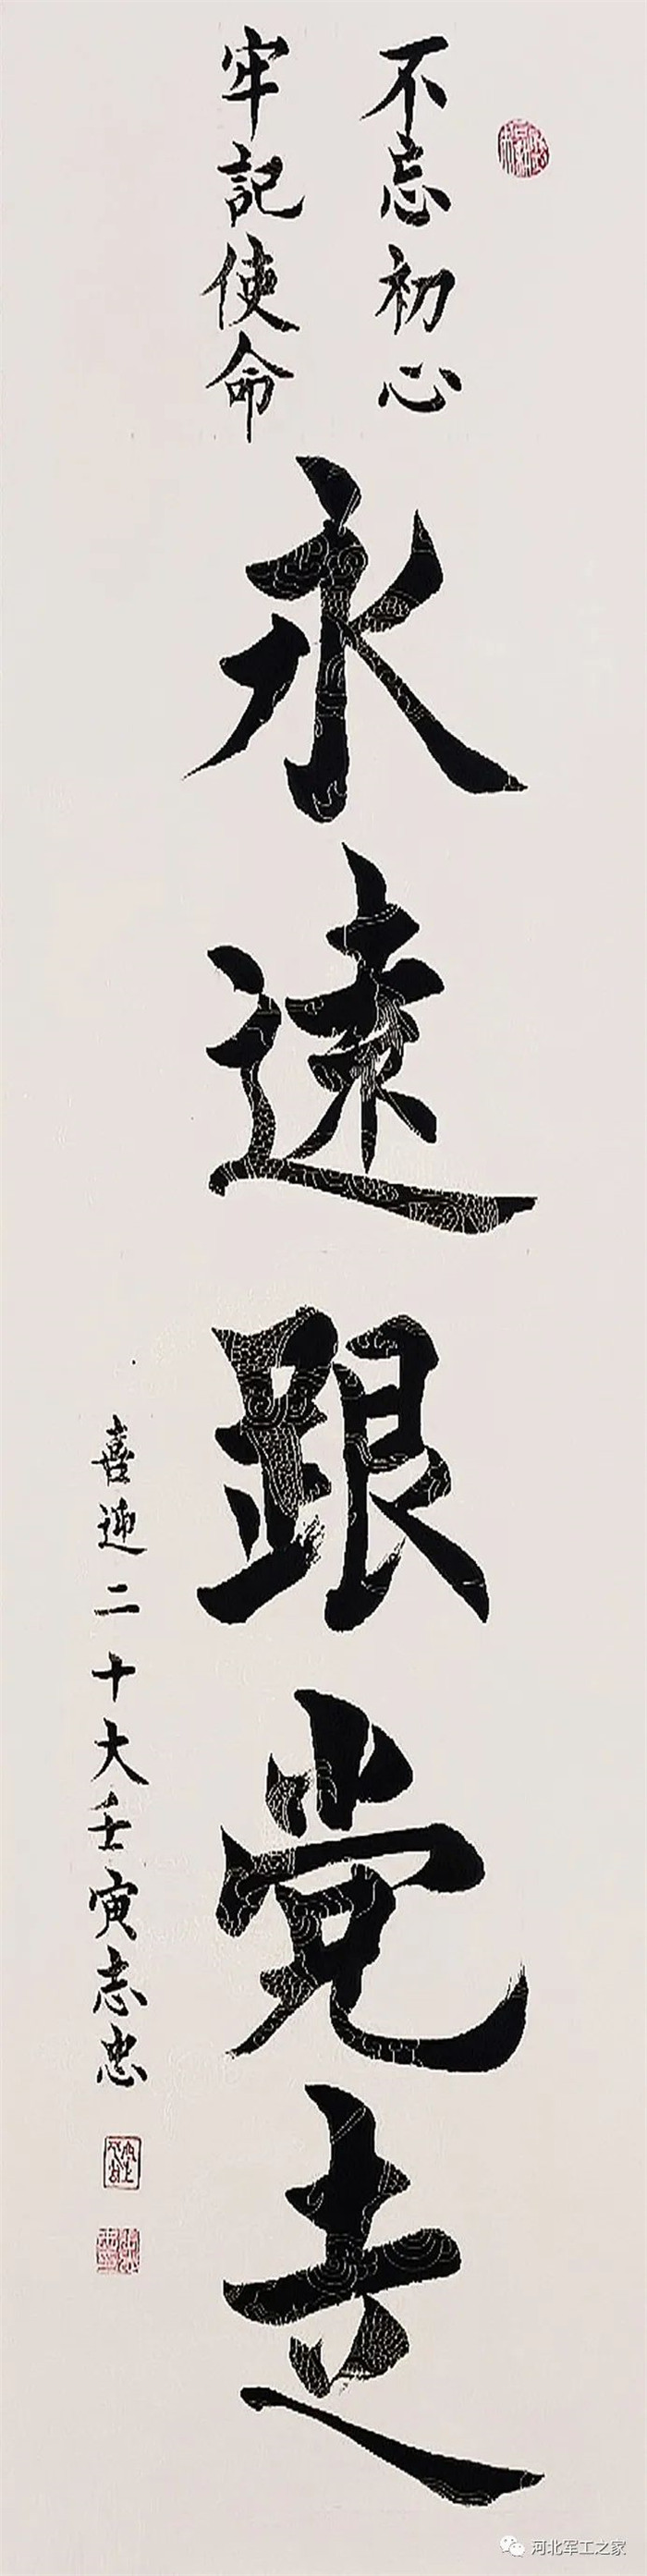 不忘初心
牢記使命
永遠跟党走
喜迎二十大壬寅志忠
河北军工之家